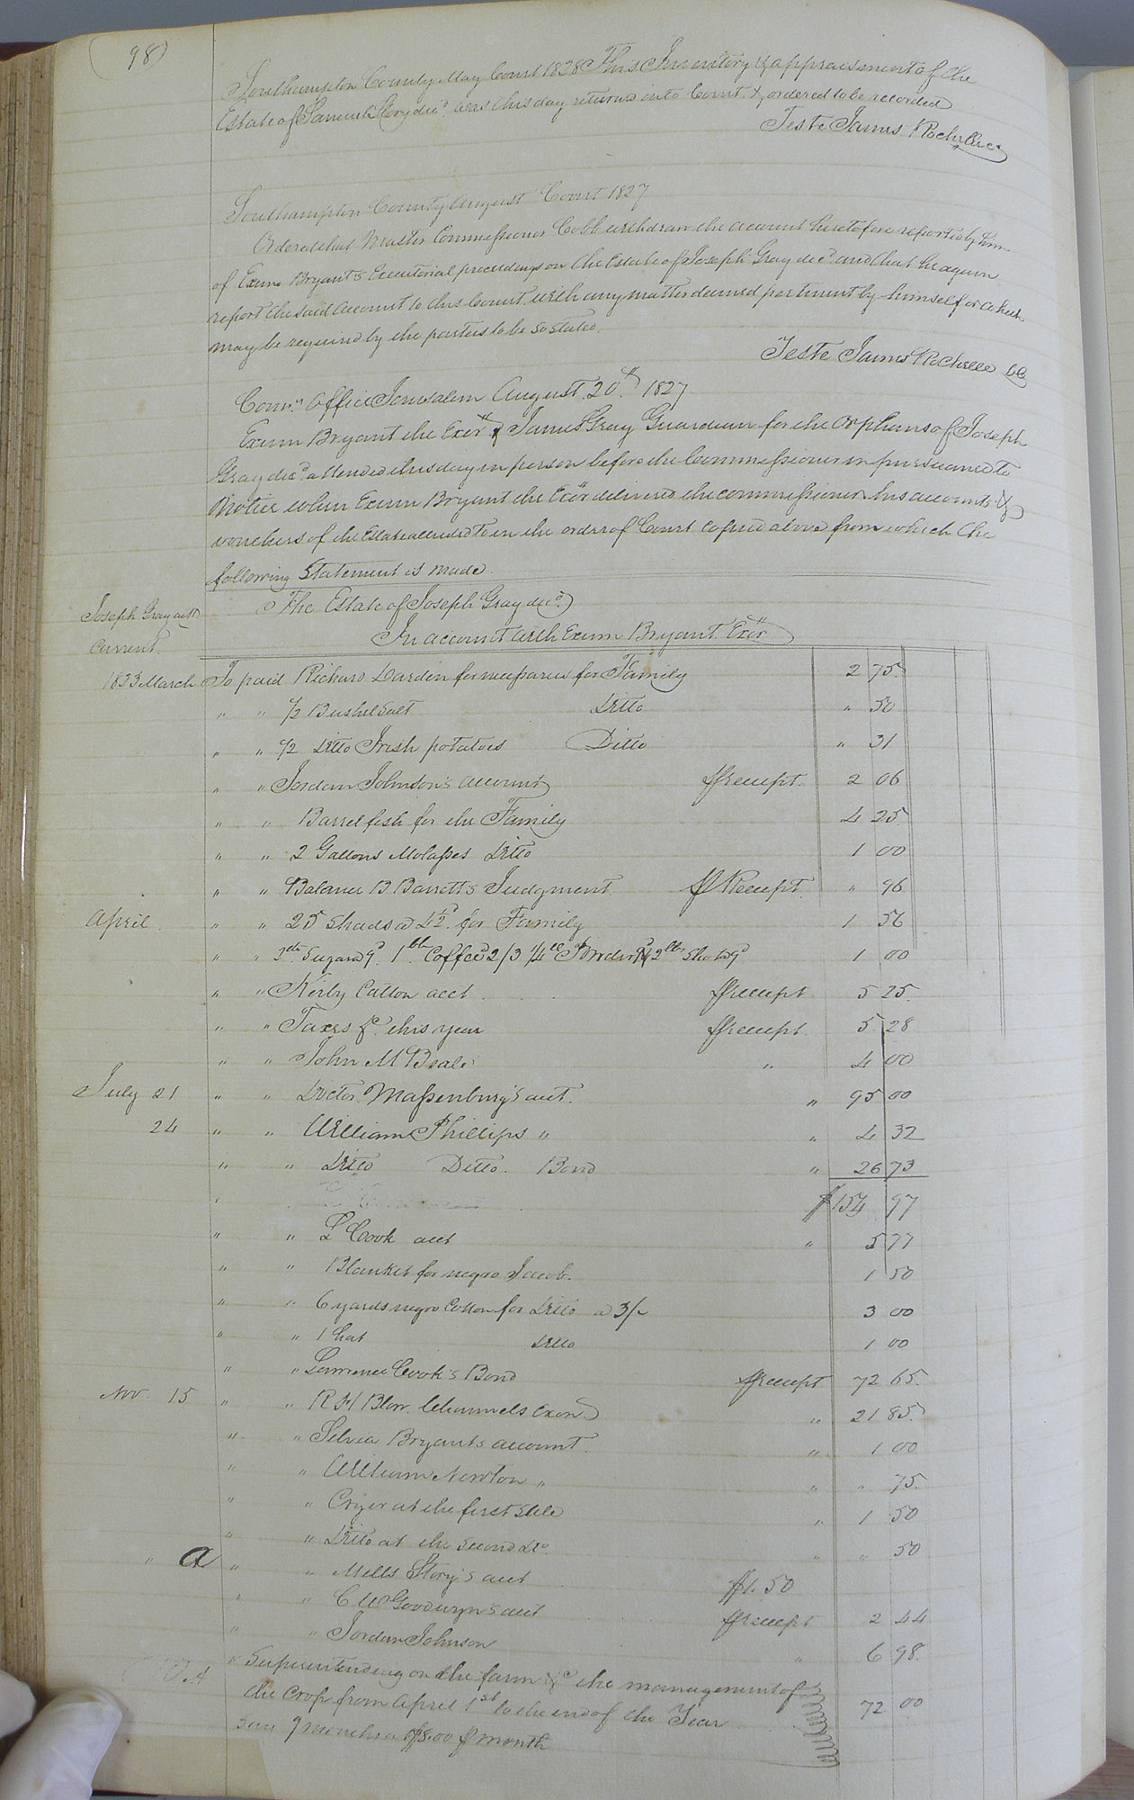 98
Southampton County May Court 1828 This Inventory & appraisment of the
Estate of Samuel Story decd was this day returned into Court & ordered to be recorded
Teste James Rochelle
Southampton County August Court 1827
Ordered that Master Commissioner Cobb withdraw the account heretofore reported by him
of Exum Bryant's Executorial proceedings on the Estate of Joseph Gray decd and that he again
report the said account to this Court with any matter deemed pertinent by himself or which
may be required by the parties to be so stated.
Teste James Rochelle
Office Jerusalem August 20th 1827
Exum Bryant the Exor & James Gray Guardian for the Orphans of Joseph
Gray decd attended this day in person before the Commissioner in pursuance to
Notice when Exum Bryant the Exor delivered the commissioner his accounts &
vouchers of the Estate alluded to in the order of Court copied above from which the
following Statement is made.
The Estate of Joseph Gray decd
Joseph Gray acct
Current
In account with Exum Bryant Exor
1823 March To paid Richard Darden for necessaries for Family 2 75
" " 1/2 Bushel Salt Ditto " 50
" " 1/2 Ditto Irish potatoes Ditto " 31
" " Jordan Johnson's account receipt 2 06
" " Barrel fish for the Family 4 25
" " 2 Gallons Molasses Ditto 1 00
" " Balance B Barretts Judgment Receipt " 96
April " " 25 Shads for Family 1 56
" " Sugar 1 lb Coffee 2/3 1 00
" " Kirby acct receipt 5 25
" " Taxes &c this year receipt 5 28
" " John M Beale " 4 00
July 21 " " Doctor Massenburg's acct. " 95 00
24 " " William Phillips " " 4 32
" " Ditto Ditto Bond " 26 73
$154 97
" " Cook acct " 5 77
" " Blanket for negro Jacob. 1 50
" " 6 yards negro Cotton for Ditto a 3/ 3 00
" " 1 hat Ditto 1 00
" " Lawrence Cook's Bond receipt 72 65
Nov. 15 " " Blow " 21 85
" " Silvia Bryants account " 1 00
" " William Newton " " " 75
" " Cryer at the first Sale " 1 50
" " Ditto at the Second Do " " 50
" a " " Mills Story's acct 1.50
" " Goodwyn's acct receipt 2 44
" " Jordan Johnson " 6 98
" Superintending on the farm &c the management of
the Crop from April 1st to the end of the Year 72 00
9 months a $8.00 month